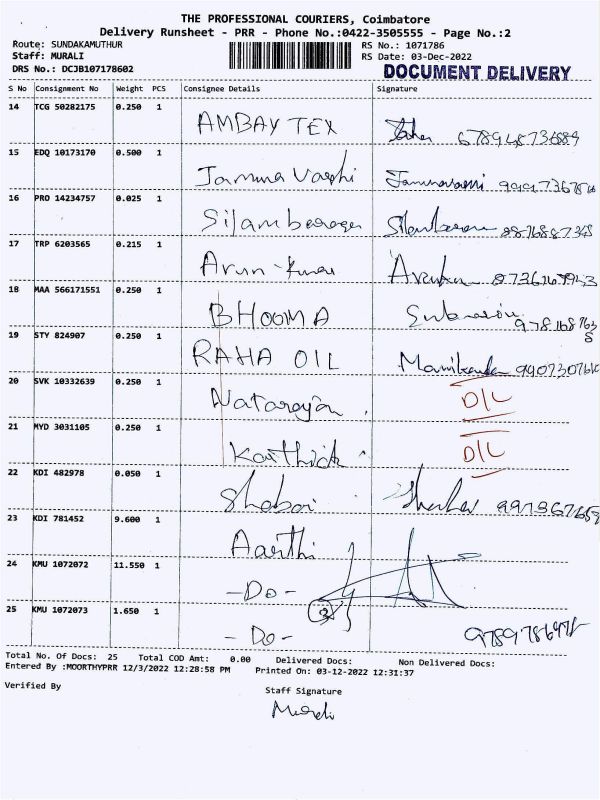 THE PROFESSIONAL COURIERS, Coimbatore
Delivery Runsheet - PRR - Phone No.:0422-3505555 - Page No.:2
Route: SUNDAKAMUTHUR RS No.: 1071786
Staff: MURALI RS Date: 03-Dec-2022
DRS No.: DCJB107178602 DOCUMENT DELIVERY
S No Consignment No Weight PCS Consignee Details Signature
14 TCG 50282175 0.250 1
AMBAY TEX
15 EDQ 10173170 0.500 1
Jamuna Vashi
16 PRO 14234757 0.025 1
17 TRP 6203565 0.215 1
Arun Kumar
18 MAA 566171551 0.250 1
BHOOMA
19 STY 824907 0.250 1
RAHA OIL
20 SVK 10332639 0.250 1
Natarajan D/L
21 MYD 3031105 0.250 1
Karthick D/L
22 KDI 482978 0.050 1
23 KDI 781452 9.600 1
Aarthi
24 KMU 1072072 11.550 1
- Do -
25 KMU 1072073 1.650 1
- Do - 2
Total No. Of Docs: 25 Total COD Amt: 0.00 Delivered Docs: Non Delivered Docs:
Entered By :MOORTHYPRR 12/3/2022 12:28:58 PM Printed On: 03-12-2022 12:31:37
Verified By Staff Signature
Murali